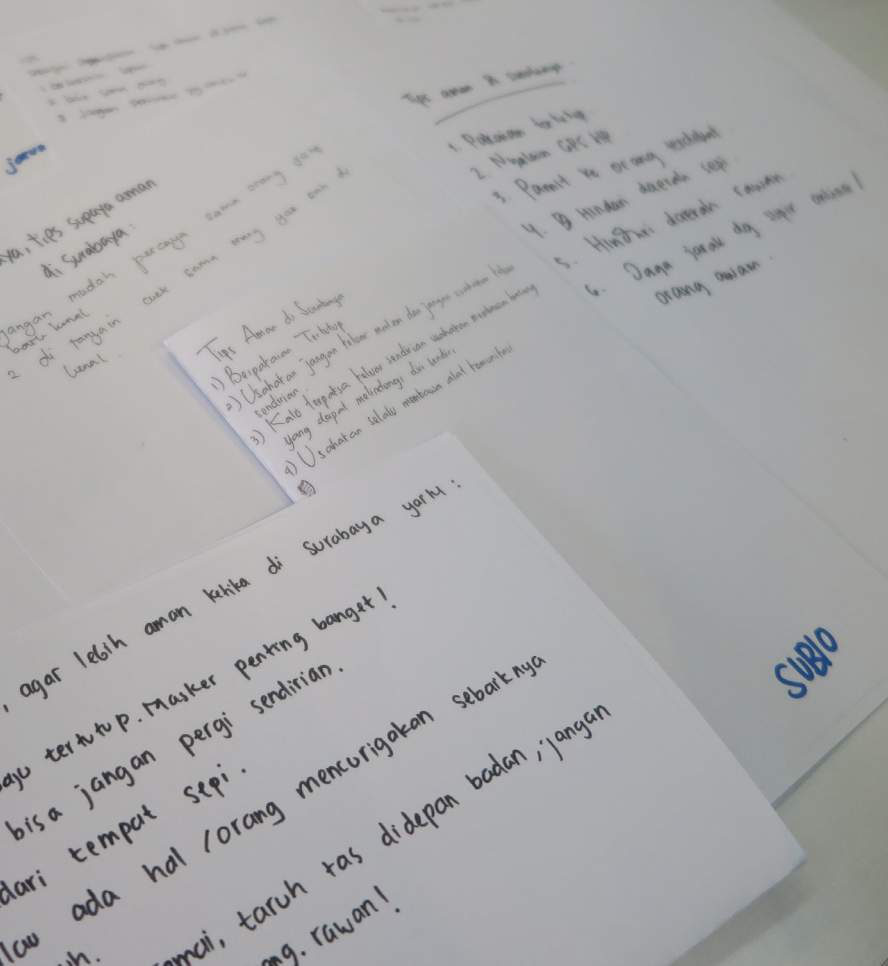 jarum
aya, tips supaya aman
di Surabaya:
jangan mudah percaya sama orang yang
baru kenal
2 di tanyain cuek sama orang yae gak di
kenal.
Tips aman di surabaya
1. Pakaian tertutup
2. Nyalain GPS HP
3. Pamit ke orang terdekat
4. B Hindari daerah sepi
5. Hindari daerah rawan
6. Jaga jarak dg supir online/
orang awam.
Tips Aman di Surabaya
1) Berpakaian Tertutup
2) Usahatan jangan keluar malam dan jangan usahatan keluar
sendirian.
3) Kalo terpaksa keluar sendirian usahakan membawa barang
yang dapat melindungi diri sendiri
4) Usahatan selalu membawa alat komunikasi
, agar lebih aman ketika di surabaya yaitu :
aju tertutup. Masker penting banget!
bisa jangan pergi sendirian.
dari tempat sepi.
lau ada hal /orang mencurigakan sebaiknya
uh.
amai, taruh tas didepan badan, jangan
ang. rawan!
SUB10